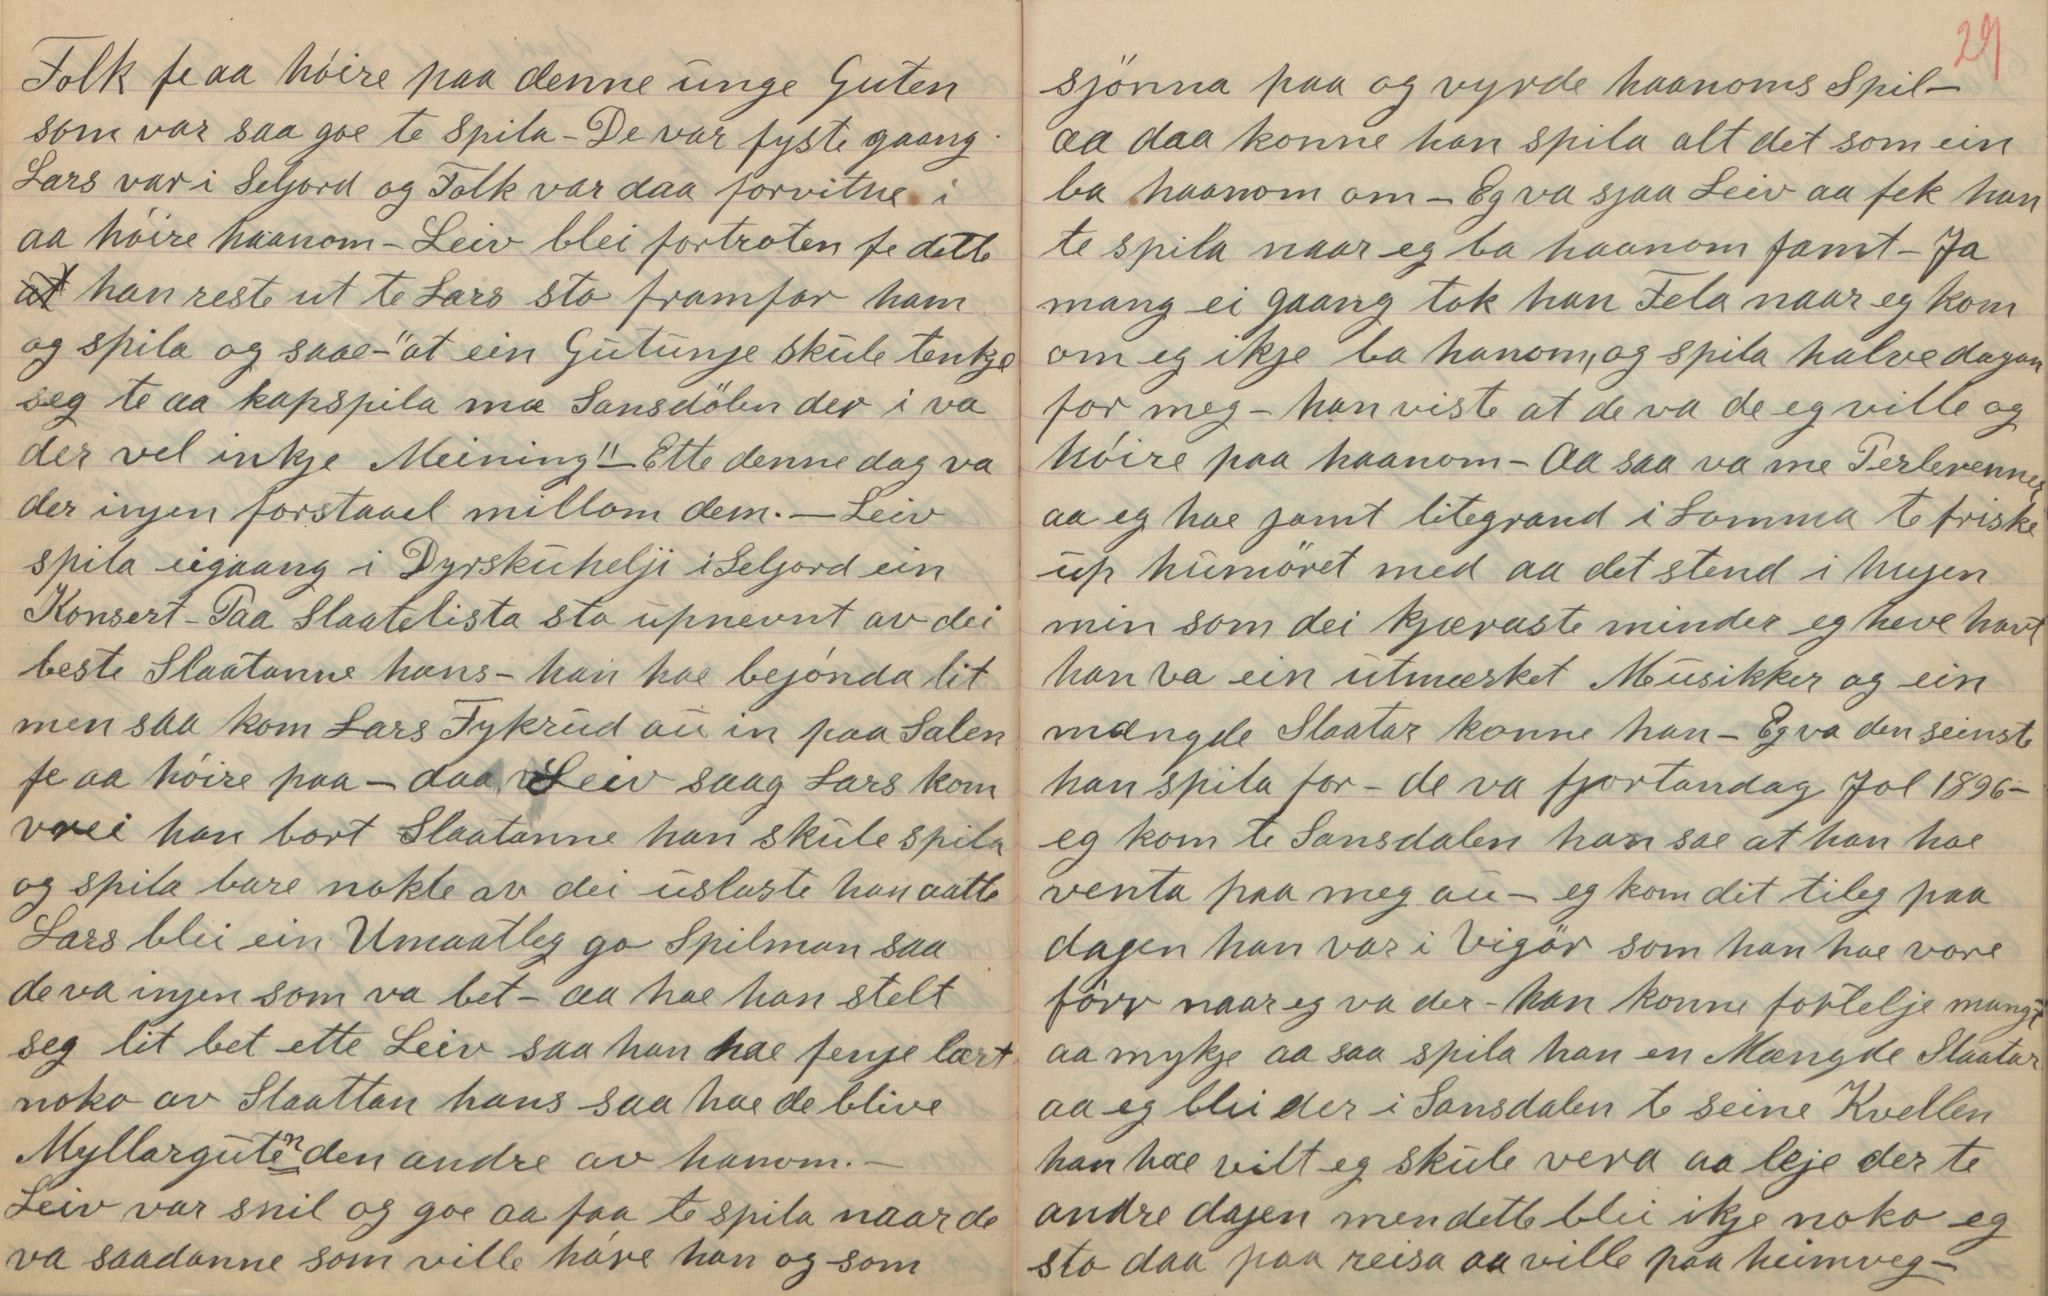 Folk fe aa höire paa denne unge Guten
som var saa goe te spila - De var fyste gaang
Lars var i Seljord og Folk var daa forvitne i
aa höire haanom - Leiv blei fortroten fe dette
han reste ut te Lars sto framfor ham
og spila og saae - "at ein Gutunje skule tenkje
seg te aa kapspila mæ Sansdölen der i va
der vel inkje Meining" - Ette denne dag va
der injen forstaael millom dem. - Leiv
spila eigaang i Dyrskuhelji i Seljord ein
Konsert - Paa Slaatelista sto upnevnt av dei
beste Slaatanne hans - han hae bejönda lit
men saa kom Lars Fykrud au in paa Salen
fe aa höire paa - daa Leiv saag Lars kom
vrei han bort Slaatanne han skule spila
og spila bare nokte av dei uslaste han aatte
Lars blei ein Umaatleg go Spilman saa
de va injen som va bet - aa hae han stelt
seg lit bet ette Leiv saa han hae fenje lært
noko av Slaattan hans saa hae de blive
Myllarguten den andre av hanom. -
Leiv var snil og goe aa faa te spila naar de
va saadanne som ville höre han og som
29
sjönna paa og vyrde haanoms Spil -
aa daa konne han spila alt det som ein
ba haanom om - Eg va sjaa Leiv aa fek han
te spila naar eg ba haanom jamt - Ja
mang ei gaang tok han Fela naar eg kom
om eg ikje ba hanom, og spila halve dagan
for meg - han viste at de va de eg ville og
höire paa haanom - Aa saa va me Perlevenner
aa eg hae jamt litegrand i Lomma te friske
up humöret med aa det stend i hujen
min som dei kjæraste minder eg heve havt
han va ein utmærket Musikker og ein
mængde Slaatar konne han - Eg va den seinste
han spila for - de va fjortandag Jol 1896 -
eg kom te Sansdalen han sae at han hae
venta paa meg au - eg kom dit tileg paa
dagen han var i Vigör som han hae vore
förr naar eg va der - han konne fortelje mangt
aa mykje aa saa spila han en Mængde Slaatar
aa eg blei der i Sansdalen te seine Kvellen
han hae vilt eg skule vera aa leje der te
andre dajen men dette blei ikje noko eg
sto daa paa reisa aa ville paa heimveg -